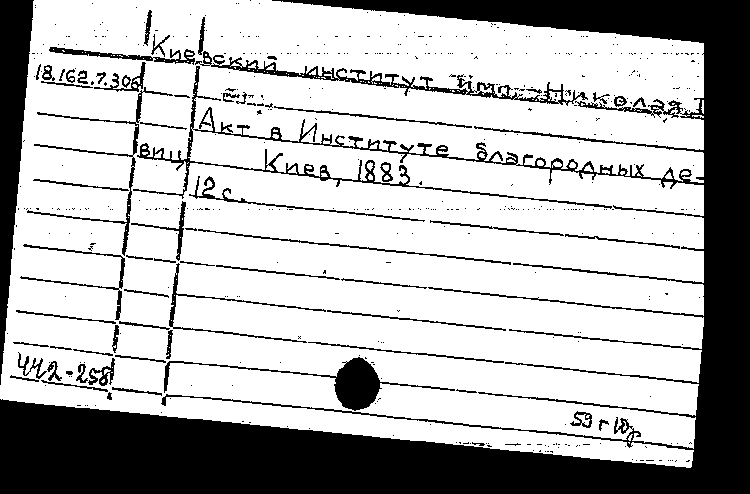 Киевский институт имп. Николая I
18.162.7.306
Акт в Институте благородных де-
виц
Киев, 1883.
12 с.
442-258
59 г